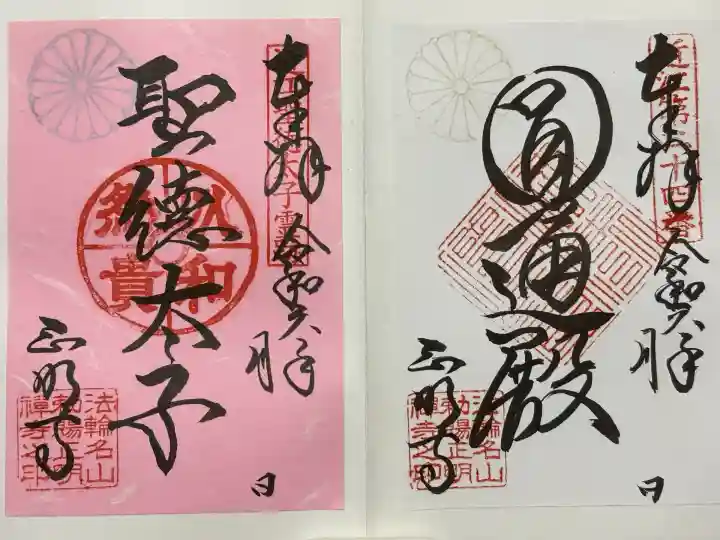 奉拝
令和六年
月
日
圓通殿
正明寺
近江第三十四番
法輪名山
勅賜正明
禅寺之印
奉拝
令和六年
月
日
聖徳太子
以和為貴
正明寺
法輪名山
勅賜正明
禅寺之印